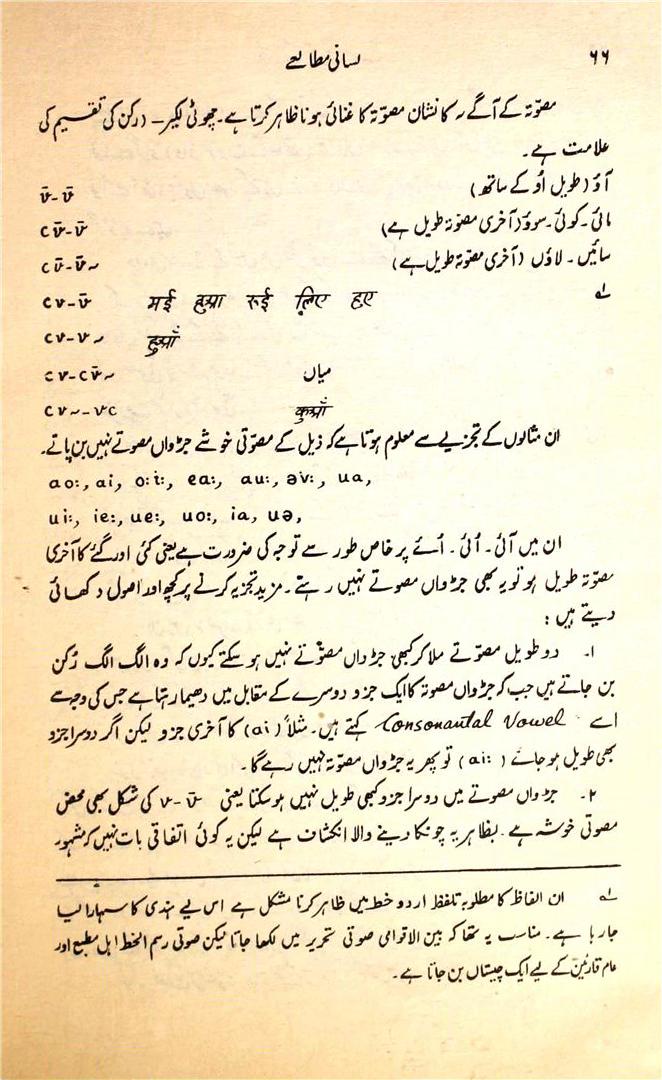 ۶۶ لسانی مطالعے
مصوّتہ کے آگے ~ کا نشان مصوّتہ کا غنائی ہونا ظاہر کرتا ہے۔ چھوٹی لکیر – (رکن کی تقسیم کی
علامت ہے۔
آؤ (طویل اُو کے ساتھ) v̄-v̄
مائی۔ کوئی۔ سوؤ (آخری مصوّتہ طویل ہے) cv̄-v̄
سائیں۔ لاؤں (آخری مصوّتہ طویل ہے) cv̄-v̄~
لہ मई हुआ रुई लिए हुए cv-v̄
हुआँ cv-v~
میاں cv-cv̄~
कुआँ cv~-vc
ان مثالوں کے تجزیے سے معلوم ہوتا ہے کہ ذیل کے مصوّتی خوشے جڑواں مصوتے نہیں بن پاتے۔
ao:, ai, o:i:, ea:, au:, əv:, ua,
ui:, ie:, ue:, uo:, ia, uə,
ان میں آئی۔ اُئی۔ اُئے پر خاص طور سے توجہ کی ضرورت ہے یعنی کئی اور گئے کا آخری
مصوّتہ طویل ہو تو یہ بھی جڑواں مصوتے نہیں رہتے۔ مزید تجزیہ کرنے پر کچھ اور اصول دکھائی
دیتے ہیں:
۱۔ دو طویل مصوّتے ملا کر کبھی جڑواں مصوّتے نہیں ہو سکتے کیوں کہ وہ الگ الگ رُکن
بن جاتے ہیں جب کہ جڑواں مصوتہ کا ایک جزو دوسرے کے مقابل میں دھیما رہتا ہے جس کی وجہ سے
اسے Consonantal Vowel کہتے ہیں۔ مثلاً (ai) کا آخری جزو لیکن اگر دوسرا جزو
بھی طویل ہو جائے (ai:) تو پھر یہ جڑواں مصوّتہ نہیں رہے گا۔
۲۔ جڑواں مصوتے میں دوسرا جزو کبھی طویل نہیں ہو سکتا یعنی v-v̄ کی شکل بھی محض
مصوتی خوشہ ہے۔ بظاہر یہ چونکا دینے والا انکشاف ہے لیکن یہ کوئی اتفاقی بات نہیں کہ مشہور
لہ ان الفاظ کا مطلوبہ تلفظ اردو خط میں ظاہر کرنا مشکل ہے اس لیے ہندی کا سہارا لیا
جا رہا ہے۔ مناسب یہ تھا کہ بین الاقوامی صوتی تحریر میں لکھا جاتا لیکن صوتی رسم الخط اہل مطبع اور
عام قارئین کے لیے ایک چیستاں بن جاتا ہے۔